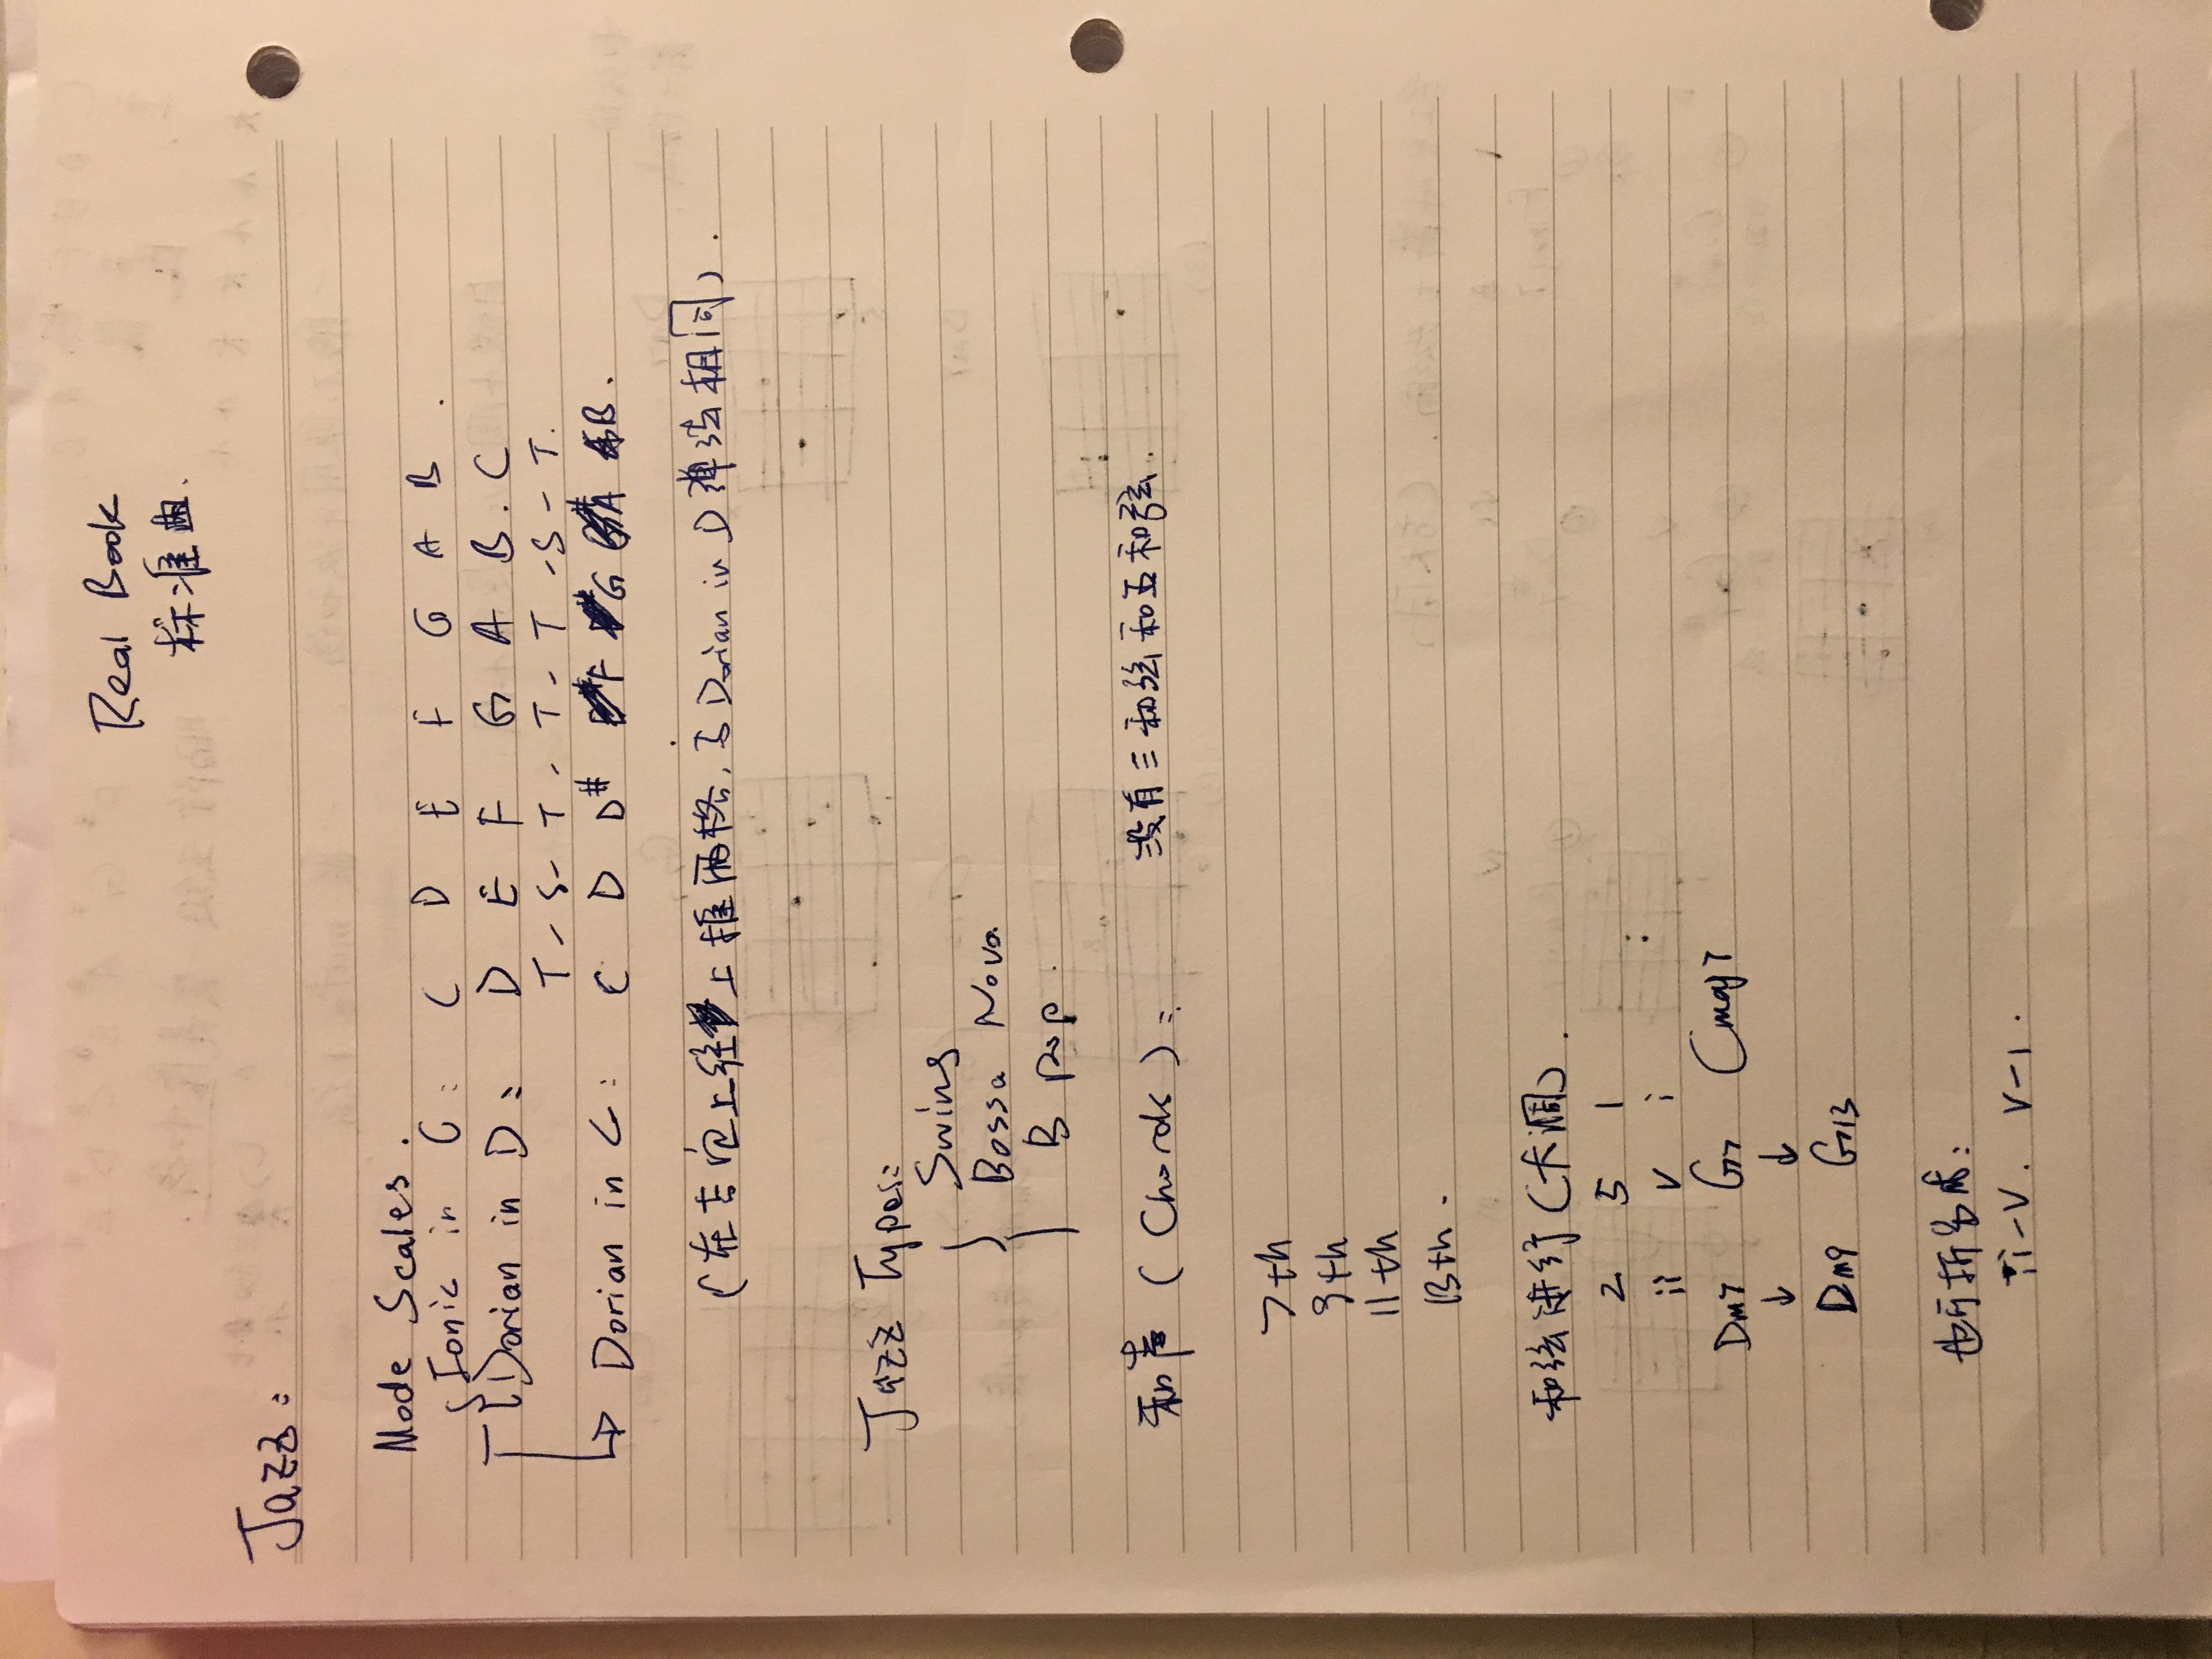 Real Book
标准曲.
Jazz:
Mode Scales.
Ionic in C: C D E F G A B.
Dorian in D: D E F G A B. C
T-S-T-T-T-S-T.
Dorian in C: C D D# F G A B.
(在吉他上往上推两格,与Dorian in D弹法相同).
Jazz Types:
Swing
Bossa Nova
B Pop.
和声 (Chords): 没有三和弦和五和弦.
7th
9th
11th
13th.
和弦进行(大调).
2 5 1
ii V i
Dm7 G7 Cmaj7
↓ ↓
Dm9 G13
也可拆分成:
ii-V. V-1.